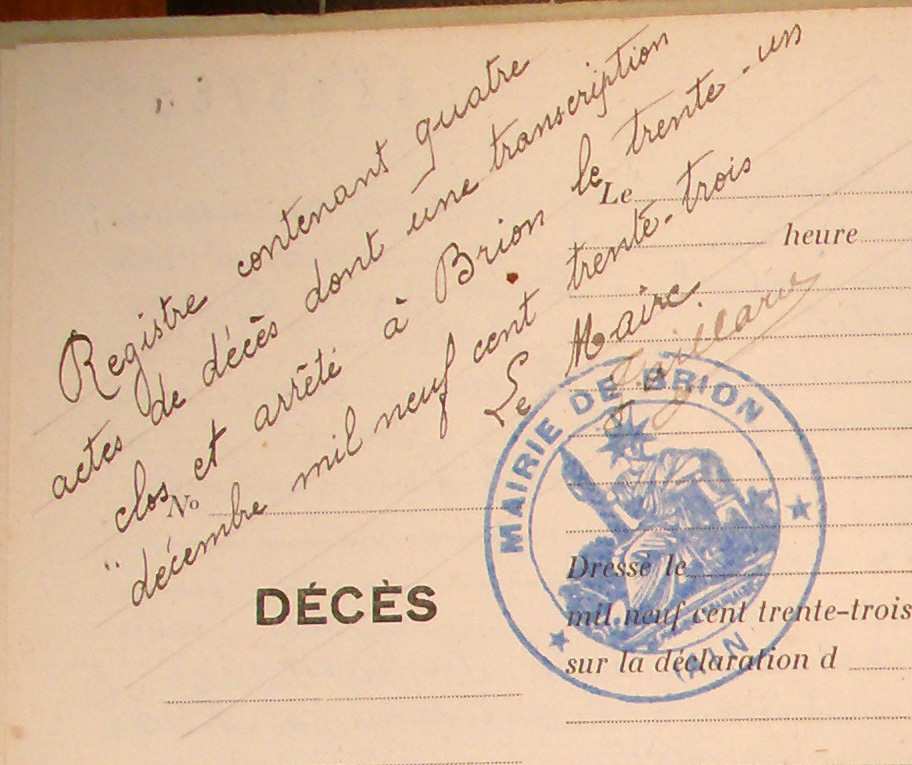 Registre contenant quatre
actes de décès dont une transcription
clos et arrêté à Brion le trente-un
décembre mil neuf cent trente-trois
Le Maire
MAIRIE DE BRION
(AIN)
Le
heure
No
DÉCÈS
Dressé le
mil neuf cent trente-trois
sur la déclaration d